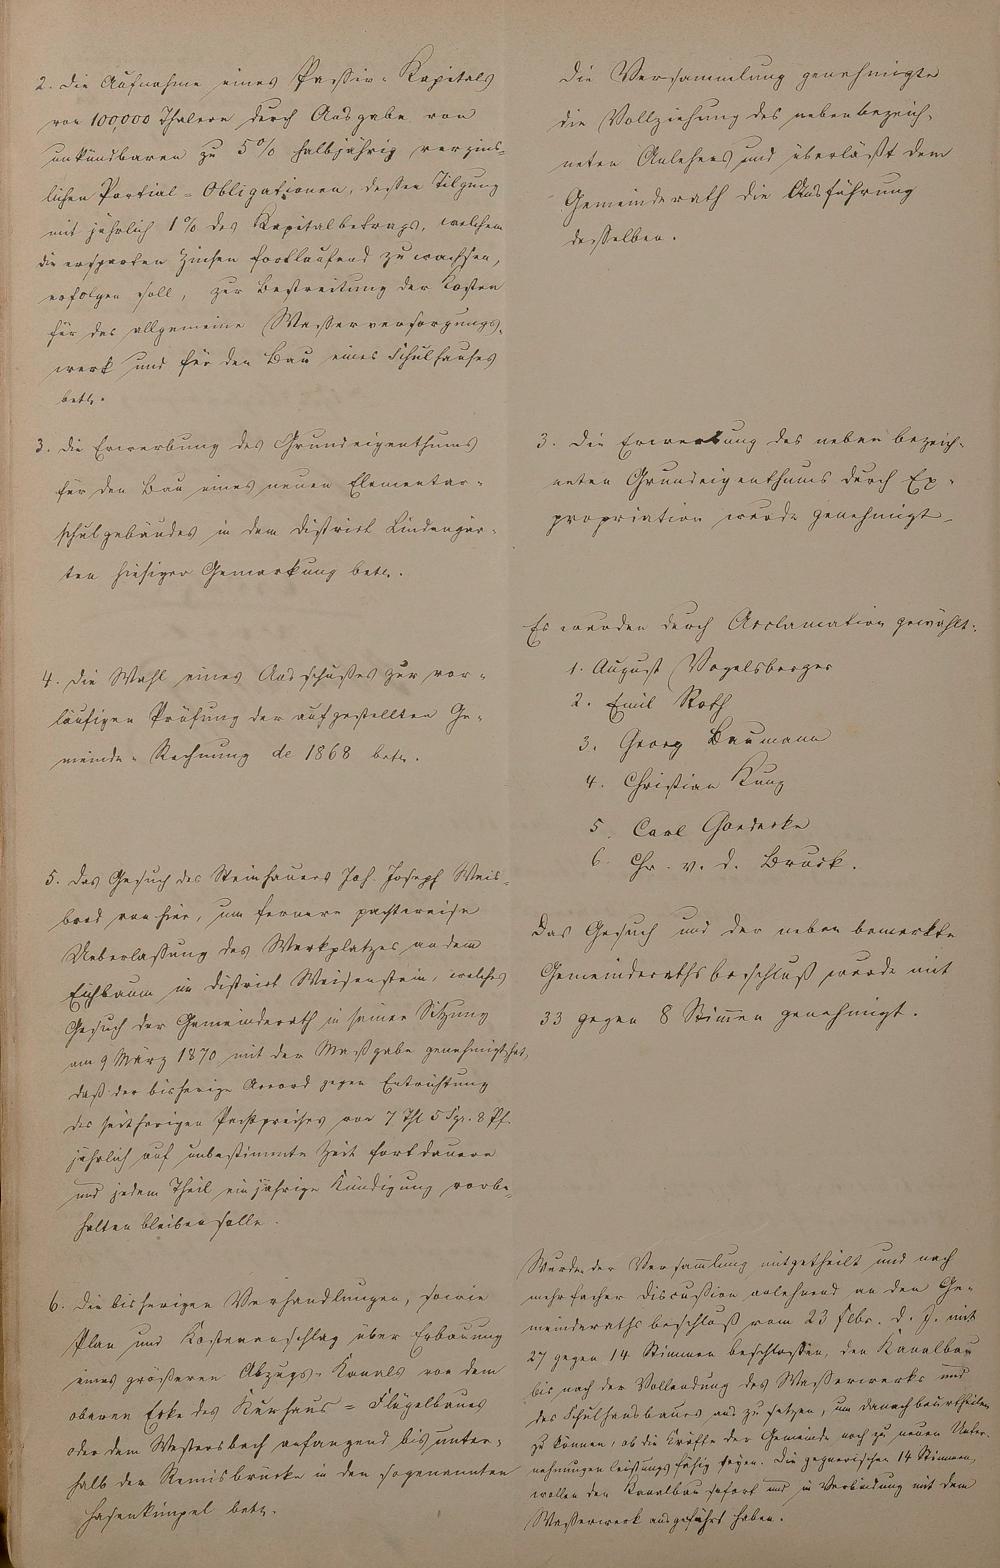 2. Die Aufnahme eines Passiv-Kapitals
von 100,000 Thalern durch Ausgabe von
unkündbaren zu 5% halbjährig verzins-
lichen Partial-Obligationen, dessen Tilgung
mit jährlich 1% des Kapitalbetrags, welchem
die ersparten Zinsen fortlaufend zu wachsen,
erfolgen soll, zur Bestreitung der Kosten
für das allgemeine Wasserversorgungs-
werk und für den Bau eines Schulhauses
betr.
3. Die Erwerbung des Grundeigenthums
für den Bau eines neuen Elementar-
schulgebäudes in dem District Lindengär-
ten hiesiger Gemarkung betr.
4. Die Wahl eines Ausschußes zur vor-
läufigen Prüfung der aufgestellten Ge-
meinde-Rechnung de 1868 betr.
5. Das Gesuch des Steinhauers Joh. Joseph Weis-
brod von hier, um fernere pachtweise
Ueberlaßung des Werkplatzes an dem
Eichbaum im District Weisenstein, welches
Gesuch der Gemeinderath in seiner Sitzung
am 9 März 1870 mit der Maßgabe genehmigt hat,
daß der bisherige Accord gegen Entrichtung
des seitherigen Pachtpreises von 7 Thl 5 Sgr. 8 Pf.
jährlich auf unbestimmte Zeit fortdauere
und jedem Theil einjährige Kündigung vorbe-
halten bleiben solle.
6. Die bisherigen Verhandlungen, sowie
Plan und Kostenanschlag über Erbauung
eines größeren Abzugs-Kanals von dem
oberen Ecke des Kurhaus-Flügelbaues
oder dem Westersbach anfangend bis unter-
halb der Remisbrücke in den sogenannten
Hasenkümpel betr.
Die Versammlung genehmigte
die Vollziehung des nebenbezeich-
neten Anlehens und überläßt dem
Gemeinderath die Ausführung
desselben.
3. Die Erwerbung des neben bezeich-
neten Grundeigenthums durch Ex-
propriation wurde genehmigt.
Es wurden durch Acclamation gewählt:
1. August Vogelsberger
2. Emil Roth
3. Georg Baumann
4. Christian Kunz
5. Carl Goedecke
6. Chr. v. d. Bruck.
Das Gesuch und der neben bemerkte
Gemeinderathsbeschluß wurde mit
33 gegen 8 Stimmen genehmigt.
Wurde der Versammlung mitgetheilt und nach
mehrfacher Discussion anlehnend an den Ge-
meinderathsbeschluß vom 23 d. J. mit
27 gegen 14 Stimmen beschlossen, den Kanalbau
bis nach der Vollendung des Wasserwerks und
des Schulhausbaues auszusetzen, um danach beurtheilen
zu können, ob die Kräfte der Gemeinde noch zu neuen Unter-
nehmungen leistungsfähig seyen. Die gegnerischen 14 Stimmen,
wollen den Kanalbau sofort und in Verbindung mit dem
Wasserwerk ausgeführt haben.